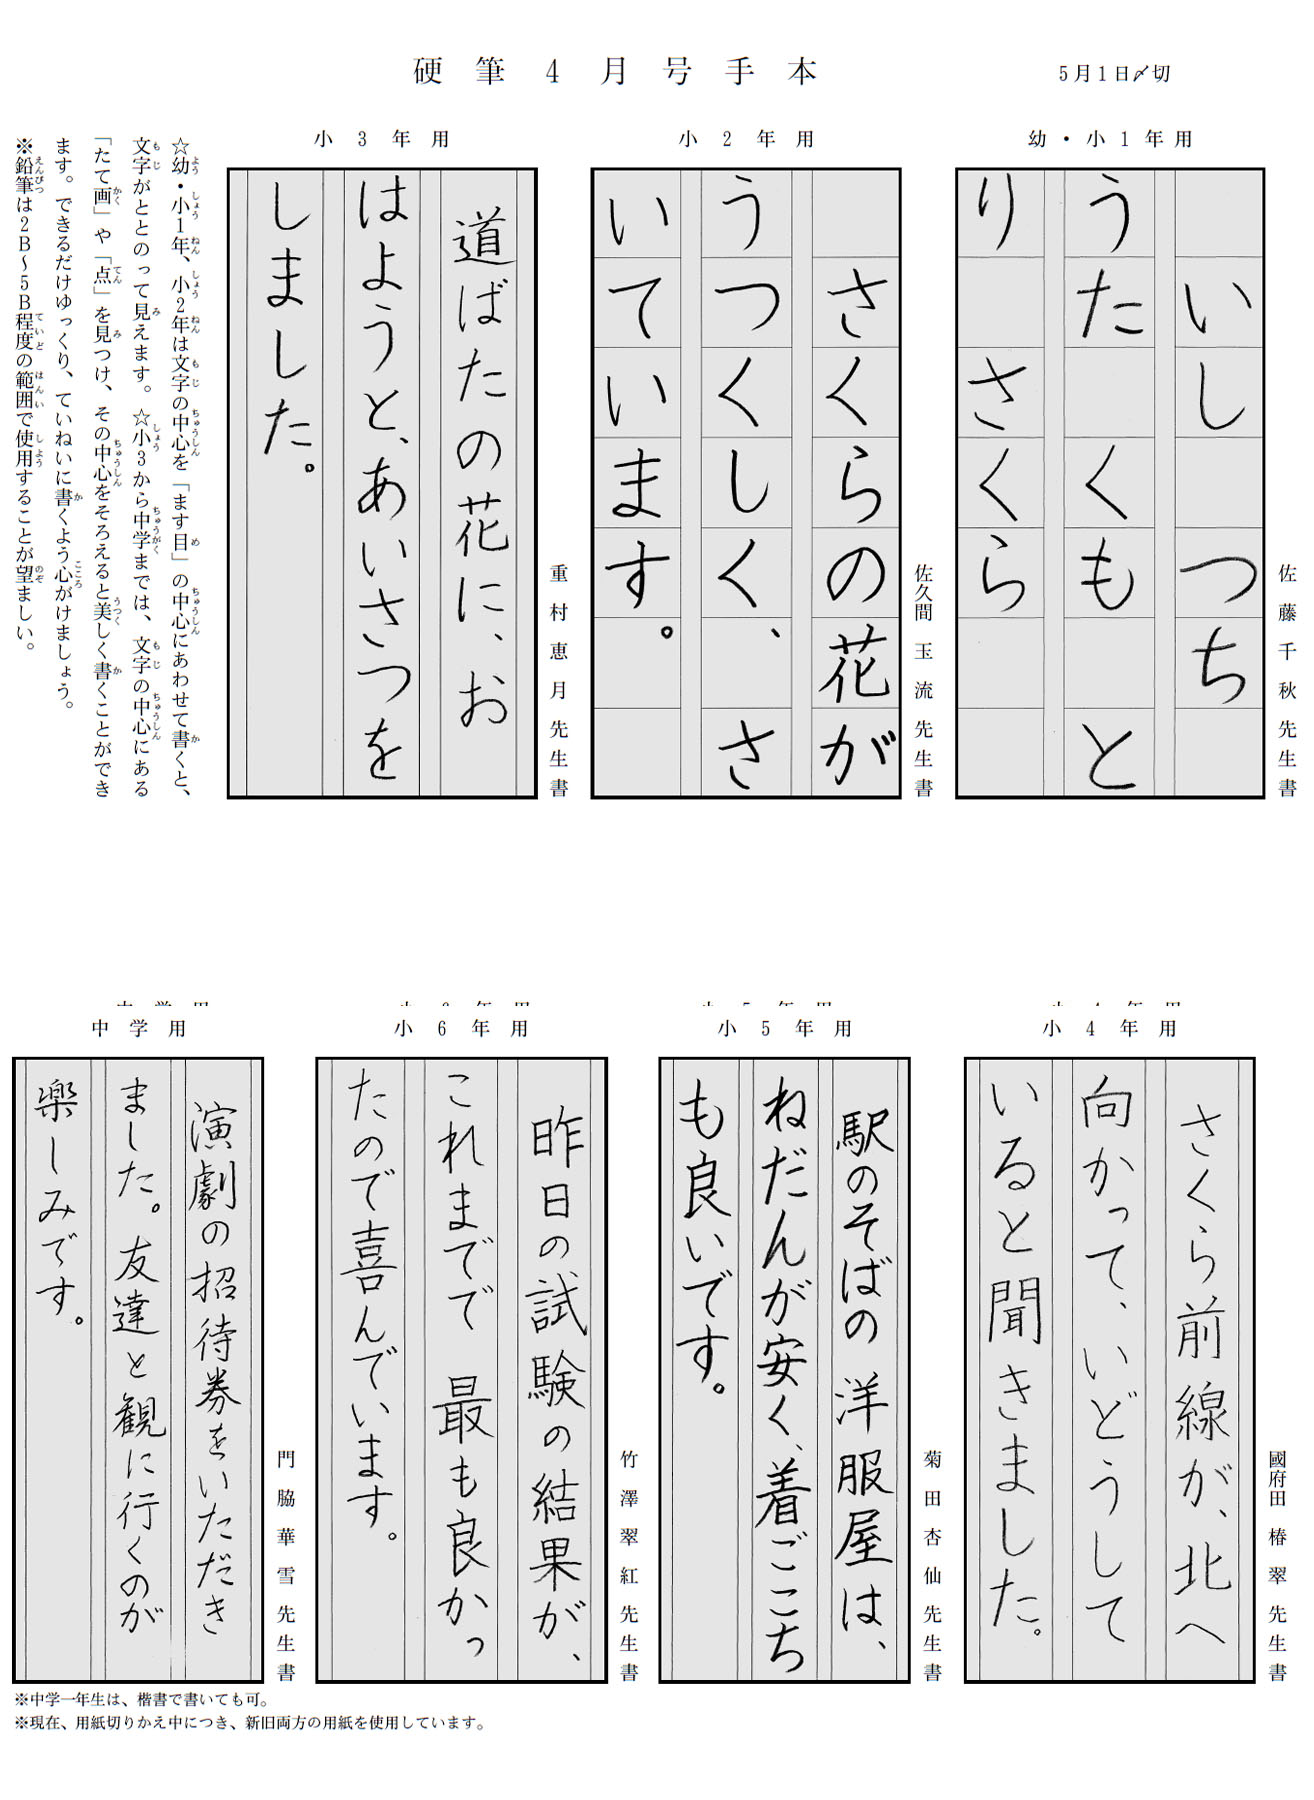 硬筆4月号手本
5月1日〆切
幼・小1年用
いし つち
うた くもと
り さくら
佐藤千秋先生書
小2年用
さくらの花が
うつくしく、さ
いています。
佐久間玉流先生書
小3年用
道ばたの花に、お
はようと、あいさつを
しました。
重村恵月先生書
☆幼・小1年、小2年は文字の中心を「ます目」の中心にあわせて書くと、
文字がととのって見えます。☆小3から中学までは、文字の中心にある
「たて画」や「点」を見つけ、その中心をそろえると美しく書くことができ
ます。できるだけゆっくり、ていねいに書くよう心がけましょう。
※鉛筆は2B〜5B程度の範囲で使用することが望ましい。
小4年用
さくら前線が、北へ
向かって、いどうして
いると聞きました。
國府田椿翠先生書
小5年用
駅のそばの洋服屋は、
ねだんが安く、着ごこち
も良いです。
菊田杏仙先生書
小6年用
昨日の試験の結果が、
これまでで最も良かっ
たので喜んでいます。
竹澤翠紅先生書
中学用
演劇の招待券をいただき
ました。友達と観に行くのが
楽しみです。
門脇華雪先生書
※中学一年生は、楷書で書いても可。
※現在、用紙切りかえ中につき、新旧両方の用紙を使用しています。